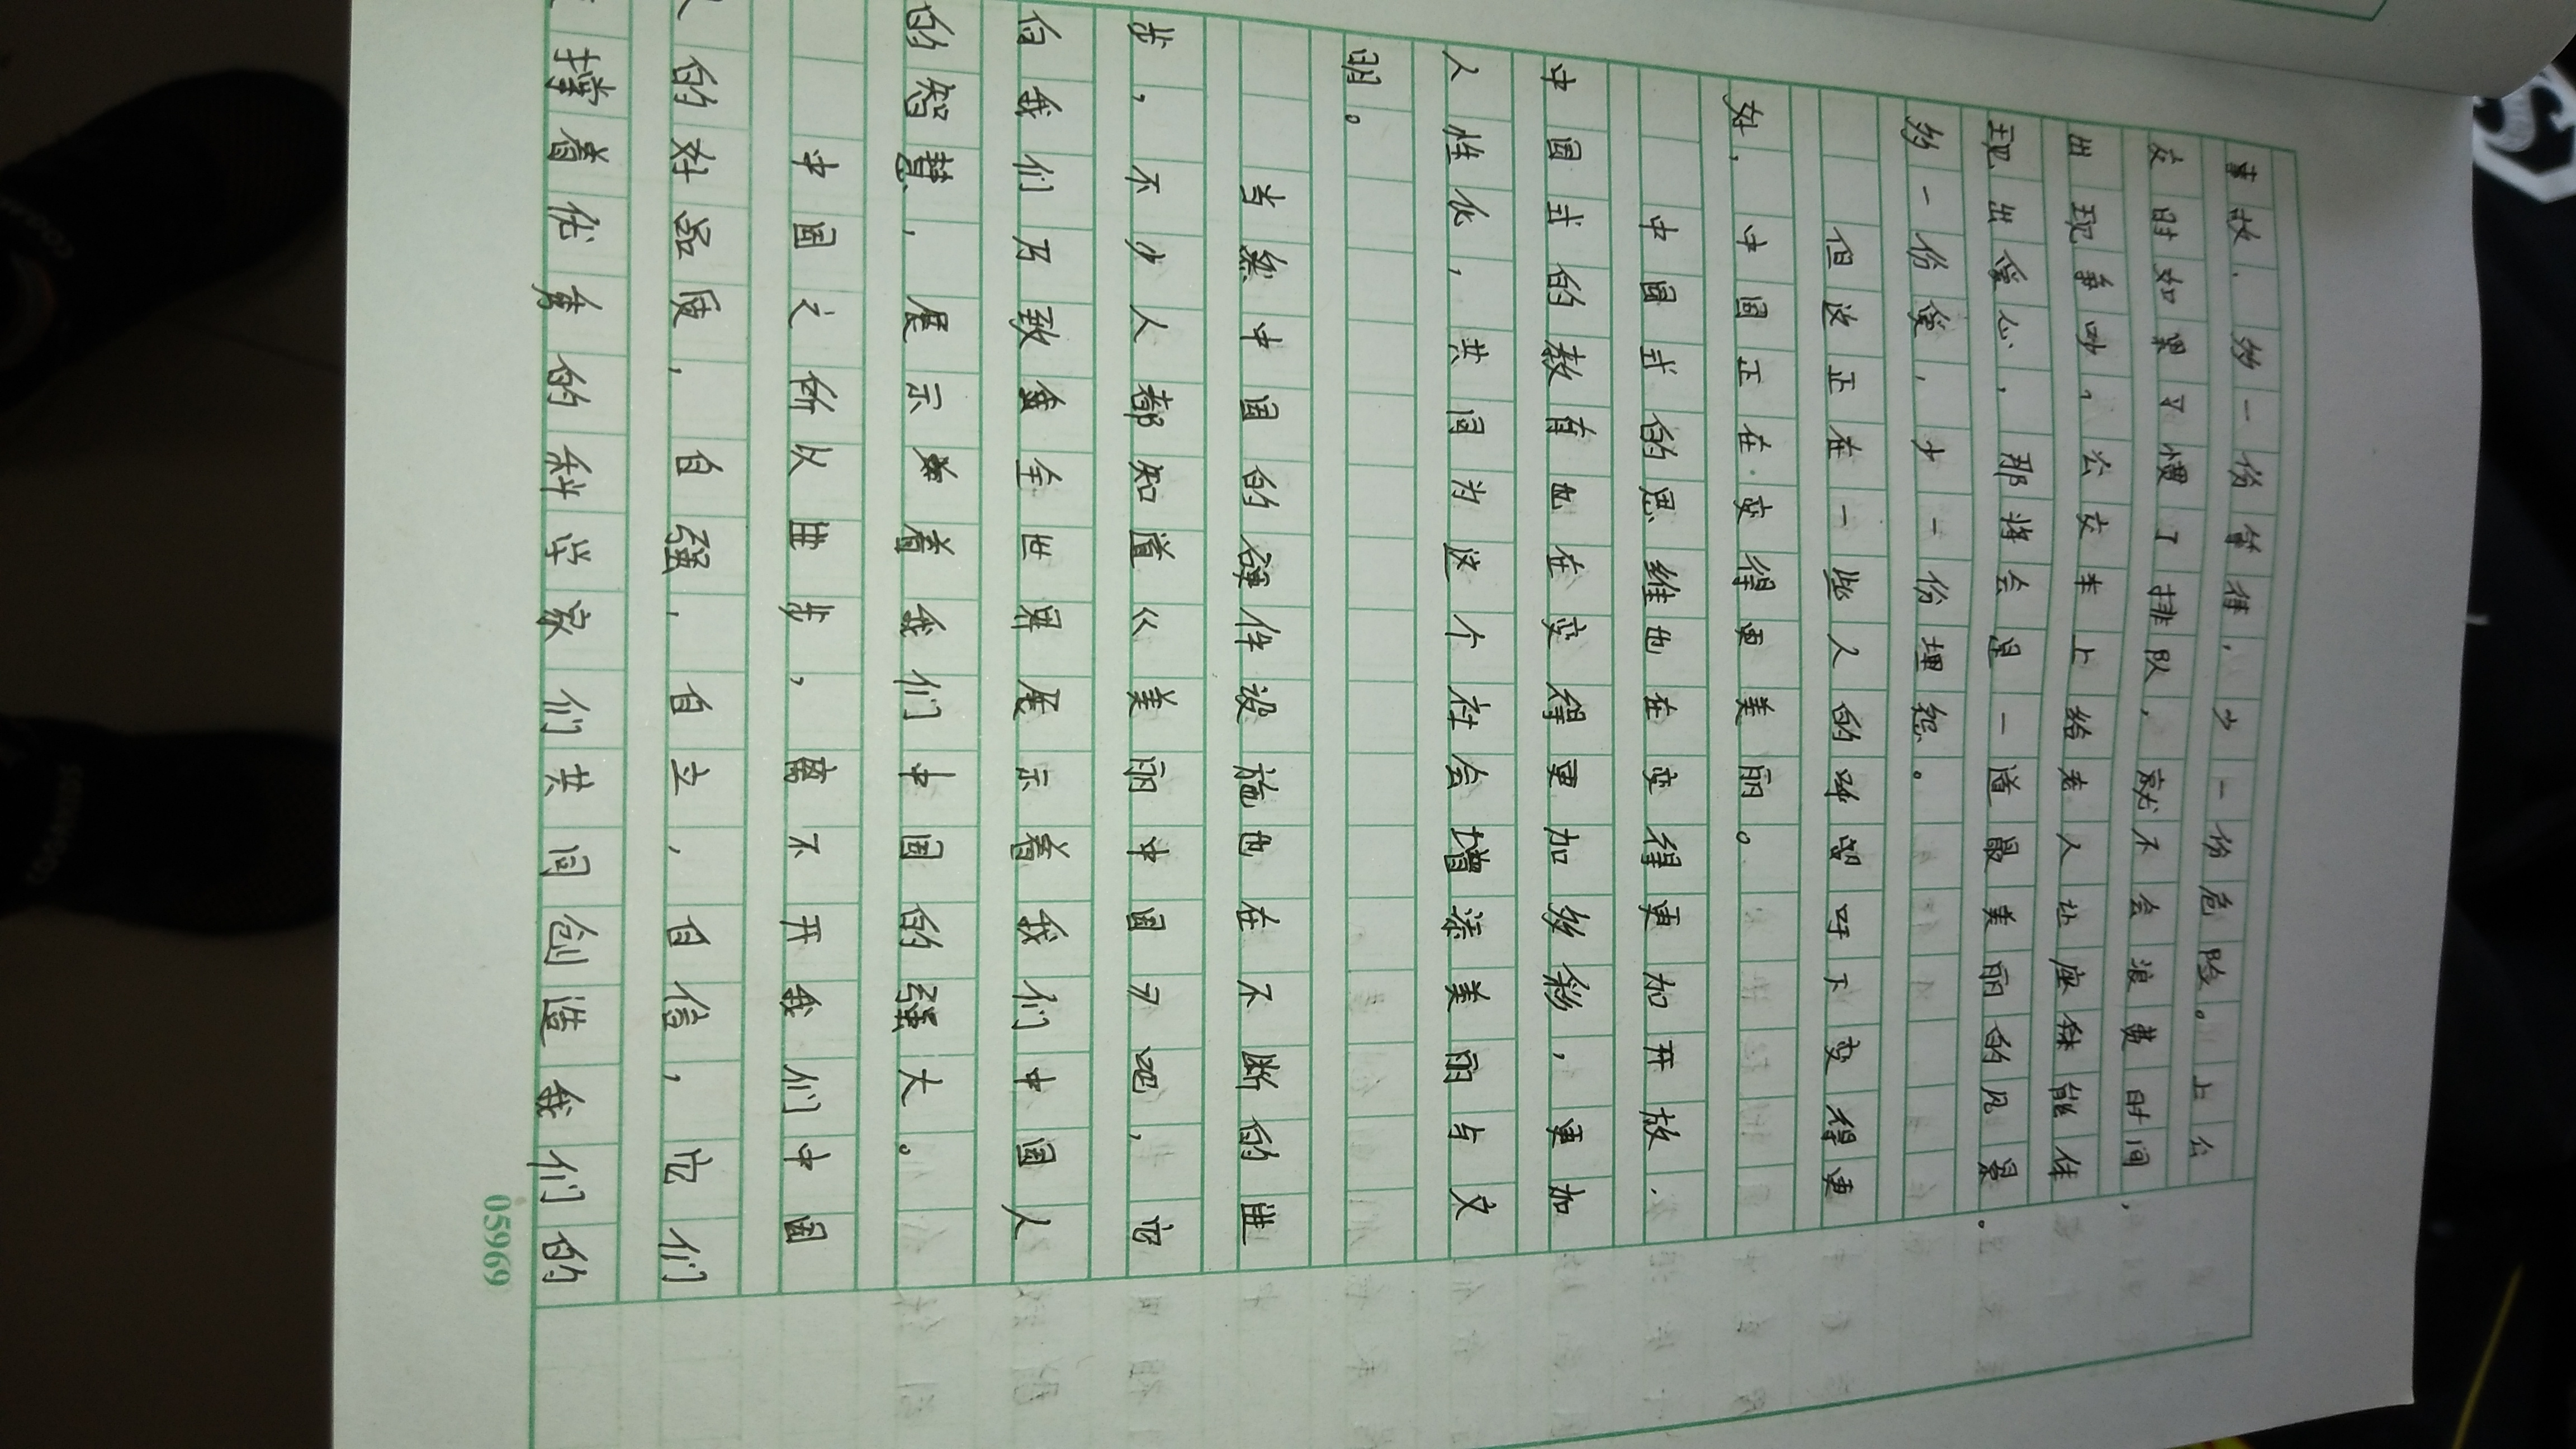 事故．多一份等待，少一份危险。上公
交时如果习惯了排队，就不会浪费时间，
出现争吵。公交车上给老人让座能体
现出爱心，那将会是一道最美丽的风景。
多一份爱，少一份埋怨。
但这正在一些人的呼下变得更
好，中国正在变得更美丽。
中国式的思维也在变得更加开放．
中国式的教育也在变得更加多彩，更加
人性化，共同为这个社会增添美丽与文
明。
当然中国的硬件设施也在不断的进
步，不少人都知道《美丽中国》吧，它
向我们乃致全世界展示着我们中国人
的智慧，展示着我们中国的强大。
中国之所以进步，离不开我们中国
人的好品质，自强，自立，自信，它们
撑着优秀的科学家们共同创造我们的
05969